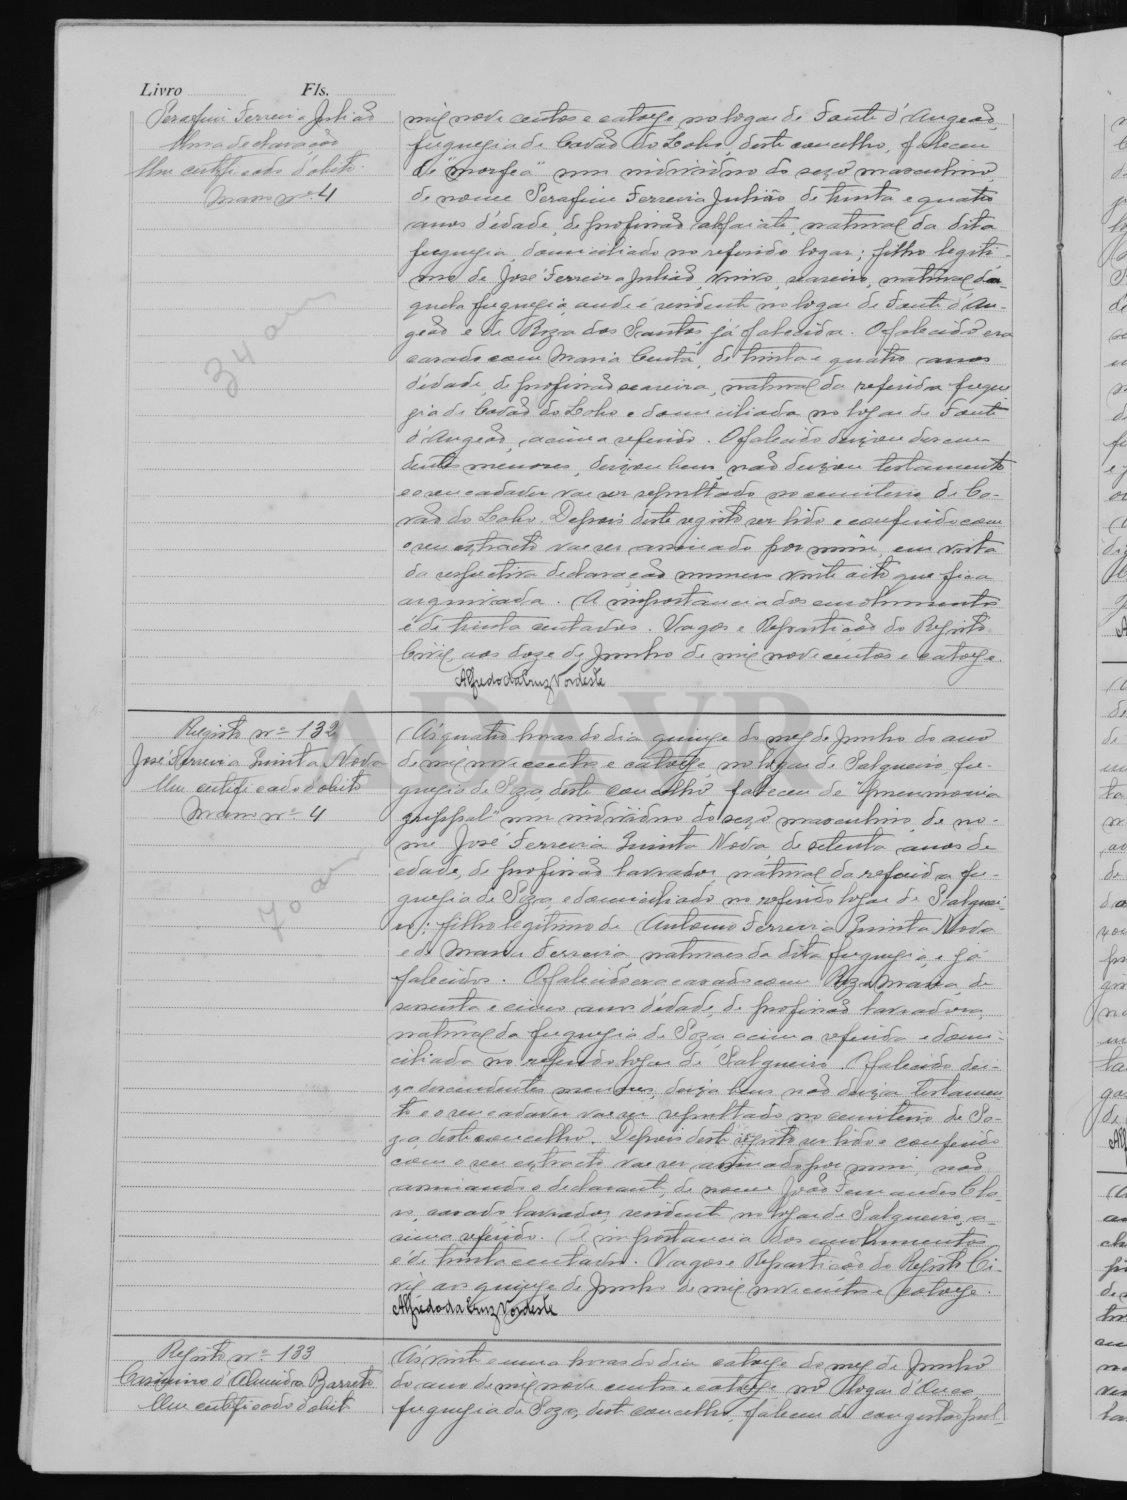 Livro Fls.
Serafim Ferreira Julião
Uma declaração
Um certificado d'obito
Maço nº 4
34 an
mil nove centos e catorze no logar de Fonte d'Angeão,
freguezia de Covão do Lobo, deste concelho, faleceu
de "morfea" um individuo do sexo masculino
de nome Serafim Ferreira Julião de trinta e quatro
anos d'edade, de profissão alfaiate, natural da dita
freguezia, domiciliado no referido logar; filho legiti-
mo de José Ferreira Julião, viuvo, seareiro, natural da-
quela freguezia, aonde é residente no logar de Fonte d'An-
geão e de Roza dos Santos, já falecida. O falecido era
casado com Maria Benta, de trinta e quatro anos
d'edade, de profissão seareira, natural da referida fregue
zia de Covão do Lobo e domiciliada no logar de Fonte
d'Angeão, acima referido. O falecido deixou descen-
dentes menores, deixou bens, não deixou testamento
e o seu cadaver vae ser sepultado no cemiterio de Co-
vão do Lobo. Depois deste registo ser lido e conferido com
o seu extracto vae ser assinado por mim, em vista
da respectiva declaração numero vinte oito que fica
arquivada. A importancia dos emolumentos
é de trinta centavos. Vagos e Repartição do Registo
Civil, aos doze de Junho de mil nove centos e catorze.
Alfredo da Cruz Nordeste
ADAVR
Registo nº 132
José Ferreira Quinta Nova
Um certificado d'obito
Maço nº 4
70 an
Ás quatro horas do dia quinze do mez de Junho do ano
de mil nove centos e catorze, no logar de Salgueiro, fre-
guezia de Soza, deste concelho faleceu de "pneumonia
grippal" um individuo do sexo masculino, de no-
me José Ferreira Quinta Nova, de setenta anos de
edade, de profissão lavrador, natural da referida fre-
guezia de Soza, e domiciliado no referido logar de Salguei-
ro; filho legitimo de Antonio Ferreira Quinta Nova
e de Maria Ferreira, naturaes da dita freguezia, e já
falecidos. O falecido era casado com Roza Maria, de
sessenta e cinco anos d'edade, de profissão lavradora,
natural da freguezia de Soza, acima referida e domi-
ciliada no referido logar de Salgueiro. O falecido dei-
xa descendentes menores, deixa bens não deixa testamen-
to e o seu cadaver vae ser sepultado no cemiterio de So-
za deste concelho. Depois deste registo ser lido e conferido
com o seu extracto vae ser assinado por mim, não
assinando o declarante, de nome João Fernandes Cla-
ro, casado lavrador, residente no logar de Salgueiro, a-
cima referido. A importancia dos emolumentos
é de trinta centavos. Vagos e Repartição do Registo Ci-
vil aos quinze de Junho de mil nove centos e catorze.
Alfredo da Cruz Nordeste
Registo nº 133
Casimiro d'Almeida Barreto
Um certificado d'obito
Ás vinte e uma horas do dia catorze do mez de Junho
do ano de mil nove centos e catorze no logar d'Ouca
freguezia de Soza, deste concelho, faleceu de congestão pul-